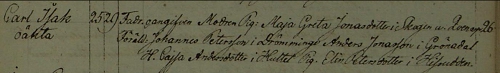 Carl Isak 25 29 Fadr. oangifven Modren Pig. Maja Greta Jonasdotter i Skogen u. 26
oäkta Föräld. Johannes Peterson i Anders Jonasson i Grönadal
H. Cajsa Andersdotter i Hultet Pig. Elin Petersdotter i